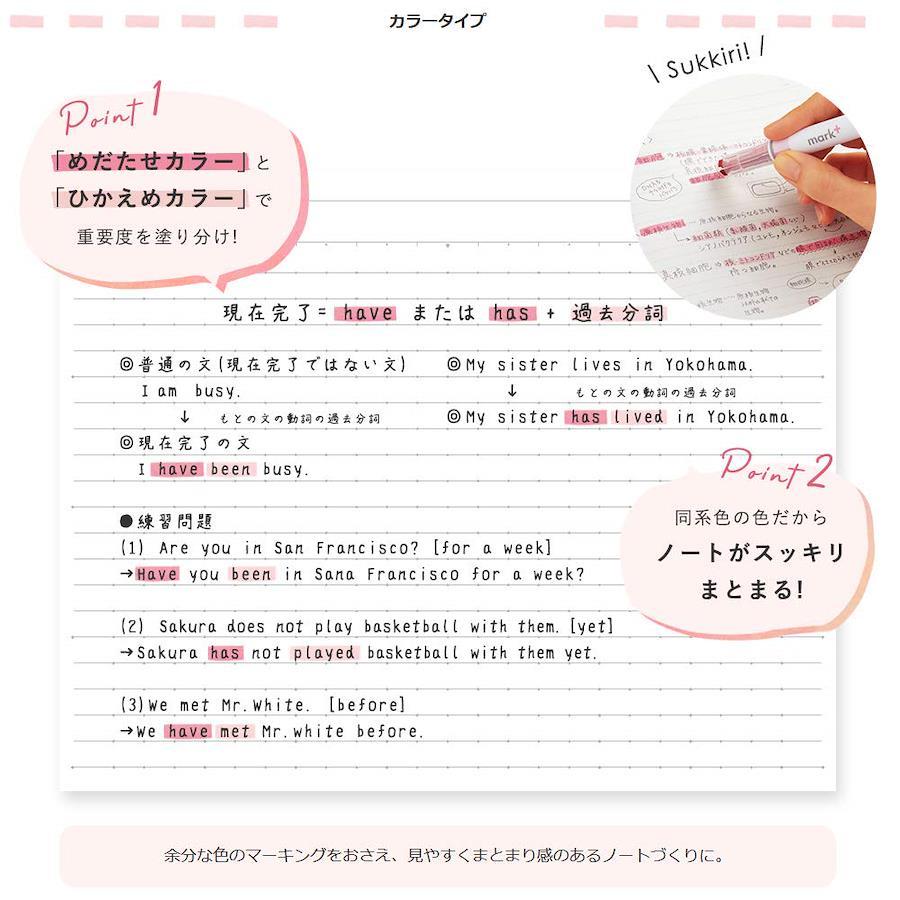 カラータイプ
\ Sukkiri! /
Point 1
「めだたせカラー」と
「ひかえめカラー」で
重要度を塗り分け!
mark+
現在完了= have または has + 過去分詞
◎普通の文(現在完了ではない文)
I am busy.
↓ もとの文の動詞の過去分詞
◎現在完了の文
I have been busy.
◎My sister lives in Yokohama.
↓ もとの文の動詞の過去分詞
◎My sister has lived in Yokohama.
Point 2
同系色の色だから
ノートがスッキリ
まとまる!
●練習問題
(1) Are you in San Francisco? [for a week]
→Have you been in Sana Francisco for a week?
(2) Sakura does not play basketball with them. [yet]
→Sakura has not played basketball with them yet.
(3)We met Mr.White. [before]
→We have met Mr.white before.
余分な色のマーキングをおさえ、見やすくまとまり感のあるノートづくりに。